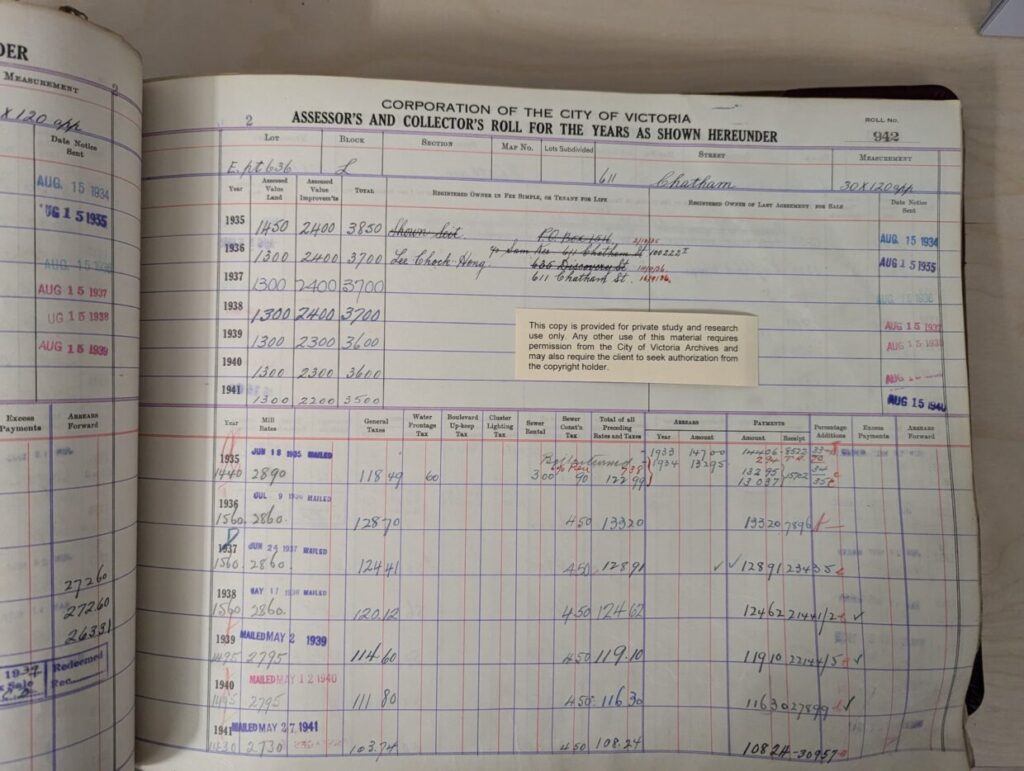 DER
MEASUREMENT 2
X 120 app
Date Notice
Sent
AUG. 15 1934
UG 15 1935
AUG 15 1937
UG 15 1938
AUG 15 1939
Excess
Payments
Arrears
Forward
27260
27260
26331
1937
x Sale
Redeemed
Rec.
CORPORATION OF THE CITY OF VICTORIA
2 ASSESSOR'S AND COLLECTOR'S ROLL FOR THE YEARS AS SHOWN HEREUNDER
ROLL NO.
942
LOT BLOCK SECTION MAP NO. Lots Subdivided STREET MEASUREMENT
E. pt 636 L 611 Chatham 30 X 120 app
Year Assessed Value Land Assessed Value Improvem'ts TOTAL REGISTERED OWNER IN FEE SIMPLE, OR TENANT FOR LIFE REGISTERED OWNER OF LAST AGREEMENT FOR SALE Date Notice Sent
1935 1450 2400 3850 P.O. Box 1514 AUG 15 1934
1936 1300 2400 3700 Lee Chock Hong. c/o Sam Kee 611 Chatham St AUG 15 1935
635 Discovery St
1937 1300 2400 3700 611 Chatham St.
1938 1300 2400 3700 AUG 15 1937
1939 1300 2300 3600 AUG 15 1938
1940 1300 2300 3600 AUG 15
1941 1300 2200 3500 AUG 15 1940
This copy is provided for private study and research
use only. Any other use of this material requires
permission from the City of Victoria Archives and
may also require the client to seek authorization from
the copyright holder.
Year Mill Rates General Taxes Water Frontage Tax Boulevard Up-keep Tax Cluster Lighting Tax Sewer Rental Sewer Const'n Tax Total of all Preceding Rates and Taxes ARREARS Year Amount PAYMENTS Amount Receipt Percentage Additions Excess Payments Arrears Forward
JUN 18 1935 MAILED
1935 1933 147 00
1934 132 95
1440 2890 118 49 60 3 00 90 122 99 132 95
130 37
1936 JUL 9 1936 MAILED
1560 2860. 128 70 4 50 133 20 133 20 7896
1937 JUN 24 1937 MAILED
1560 2860. 124 41 4 50 128 91 128 91 23435
1938 MAY 17 1938 MAILED
1560 2860. 120.12 4 50 124 62 124 62
1939 MAILED MAY 2 1939
1495 2795 114.60 4 50 119.10 119 10
1940 MAILED MAY 12 1940
1495 2795 111 80 4 50 116 30 116 30 27899
1941 MAILED MAY 27 1941
1430 2730 103.74 4 50 108.24 108 24 30957